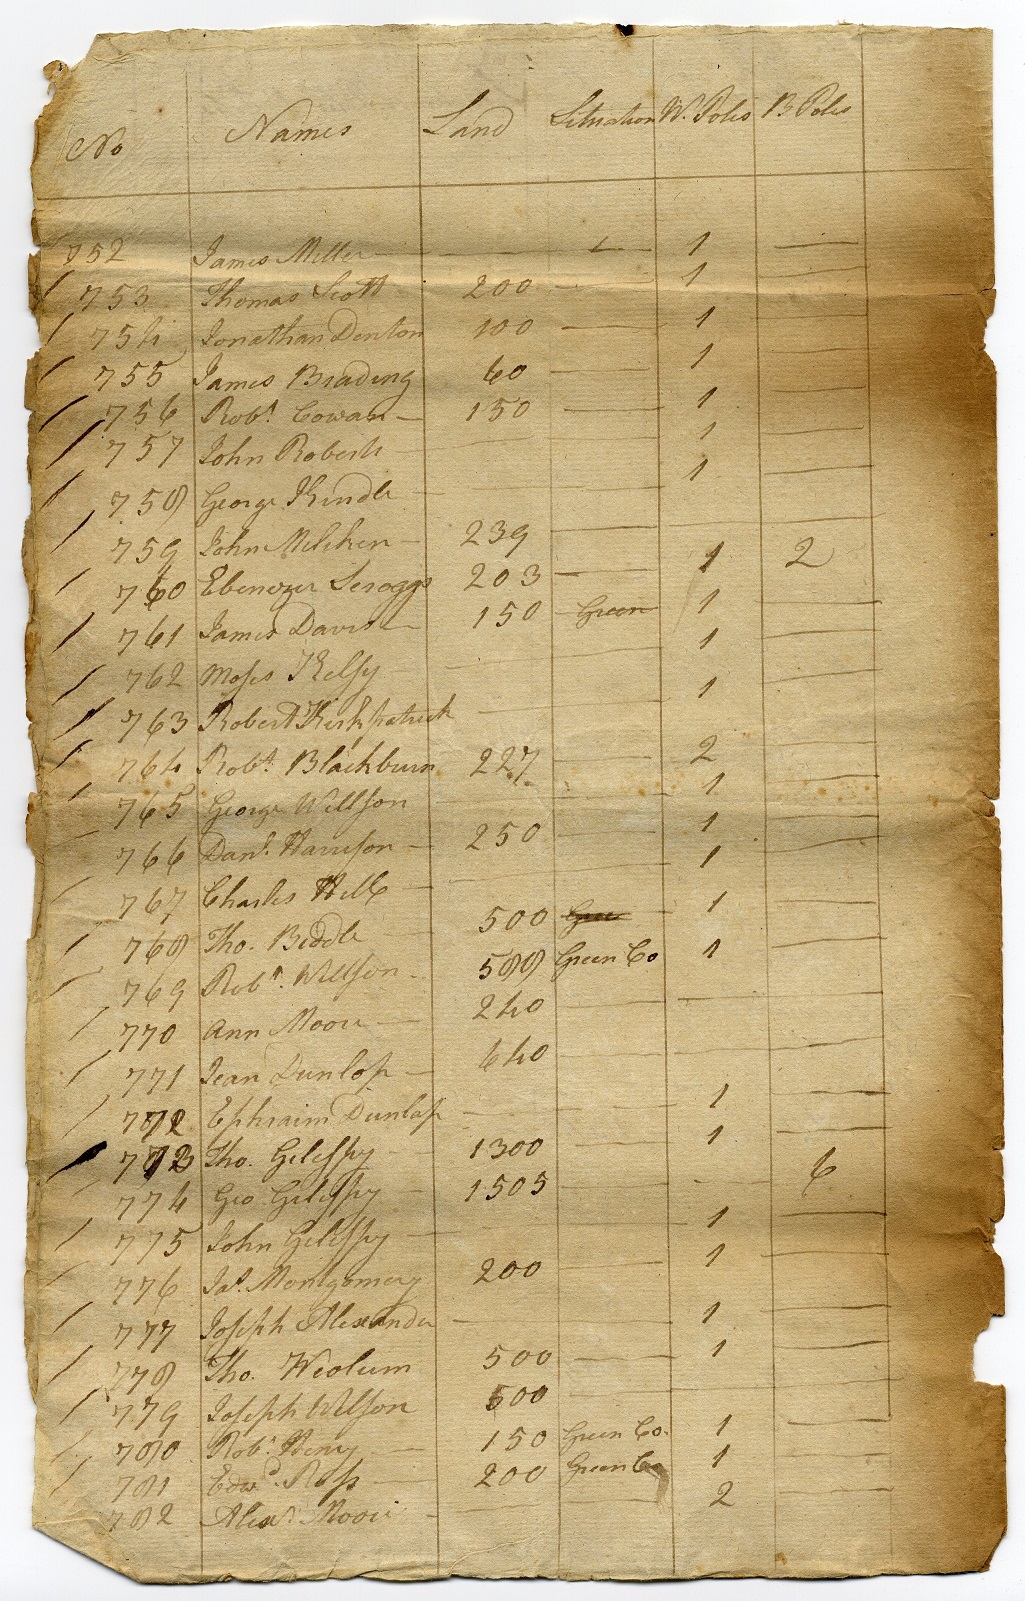 No Names Land Situation W. Poles B Poles
752 James Miller — — — 1 —
753 Thomas Scott 200 — 1 —
754 Jonathan Denton 100 — 1 —
755 James Brading 60 — 1 —
756 Robt. Cowan — 150 — 1 —
757 John Roberts — — — 1 —
758 George Kindle — — — 1 —
759 John Meliken — 239 — — —
760 Ebenezer Scroggs 203 — 1 2
761 James Davis — 150 Green 1 —
762 Moses Kelsy — — — 1 —
763 Robert Kirkpatrick — — 1 —
764 Robt. Blackburn 227 — 2 —
765 George Willson — — 1 —
766 Danl. Harrison — 250 — 1 —
767 Charles — — — 1 —
768 Tho. Biddle — 500 — 1 —
769 Robt. Willson — 588 Green Co 1 —
770 Ann Moore — 240 — — —
771 Jean Dunlop — 640 — — —
772 Ephraim Dunlap — — 1 —
773 Tho. Gilespy — 1300 — 1 —
774 Geo. Gilespy — 1505 — - 6
775 John Gilespy — — — 1 —
776 Jas. Montgomery 200 — 1 —
777 Joseph Alexander — — 1 —
778 Tho. 500 — 1 —
779 Joseph Wilson 600 — — —
780 Robt. Henry — 150 Green Co. 1 —
781 Edwd. Ross 200 Green Co 1 —
782 Alexr. Moore — — — 2 —